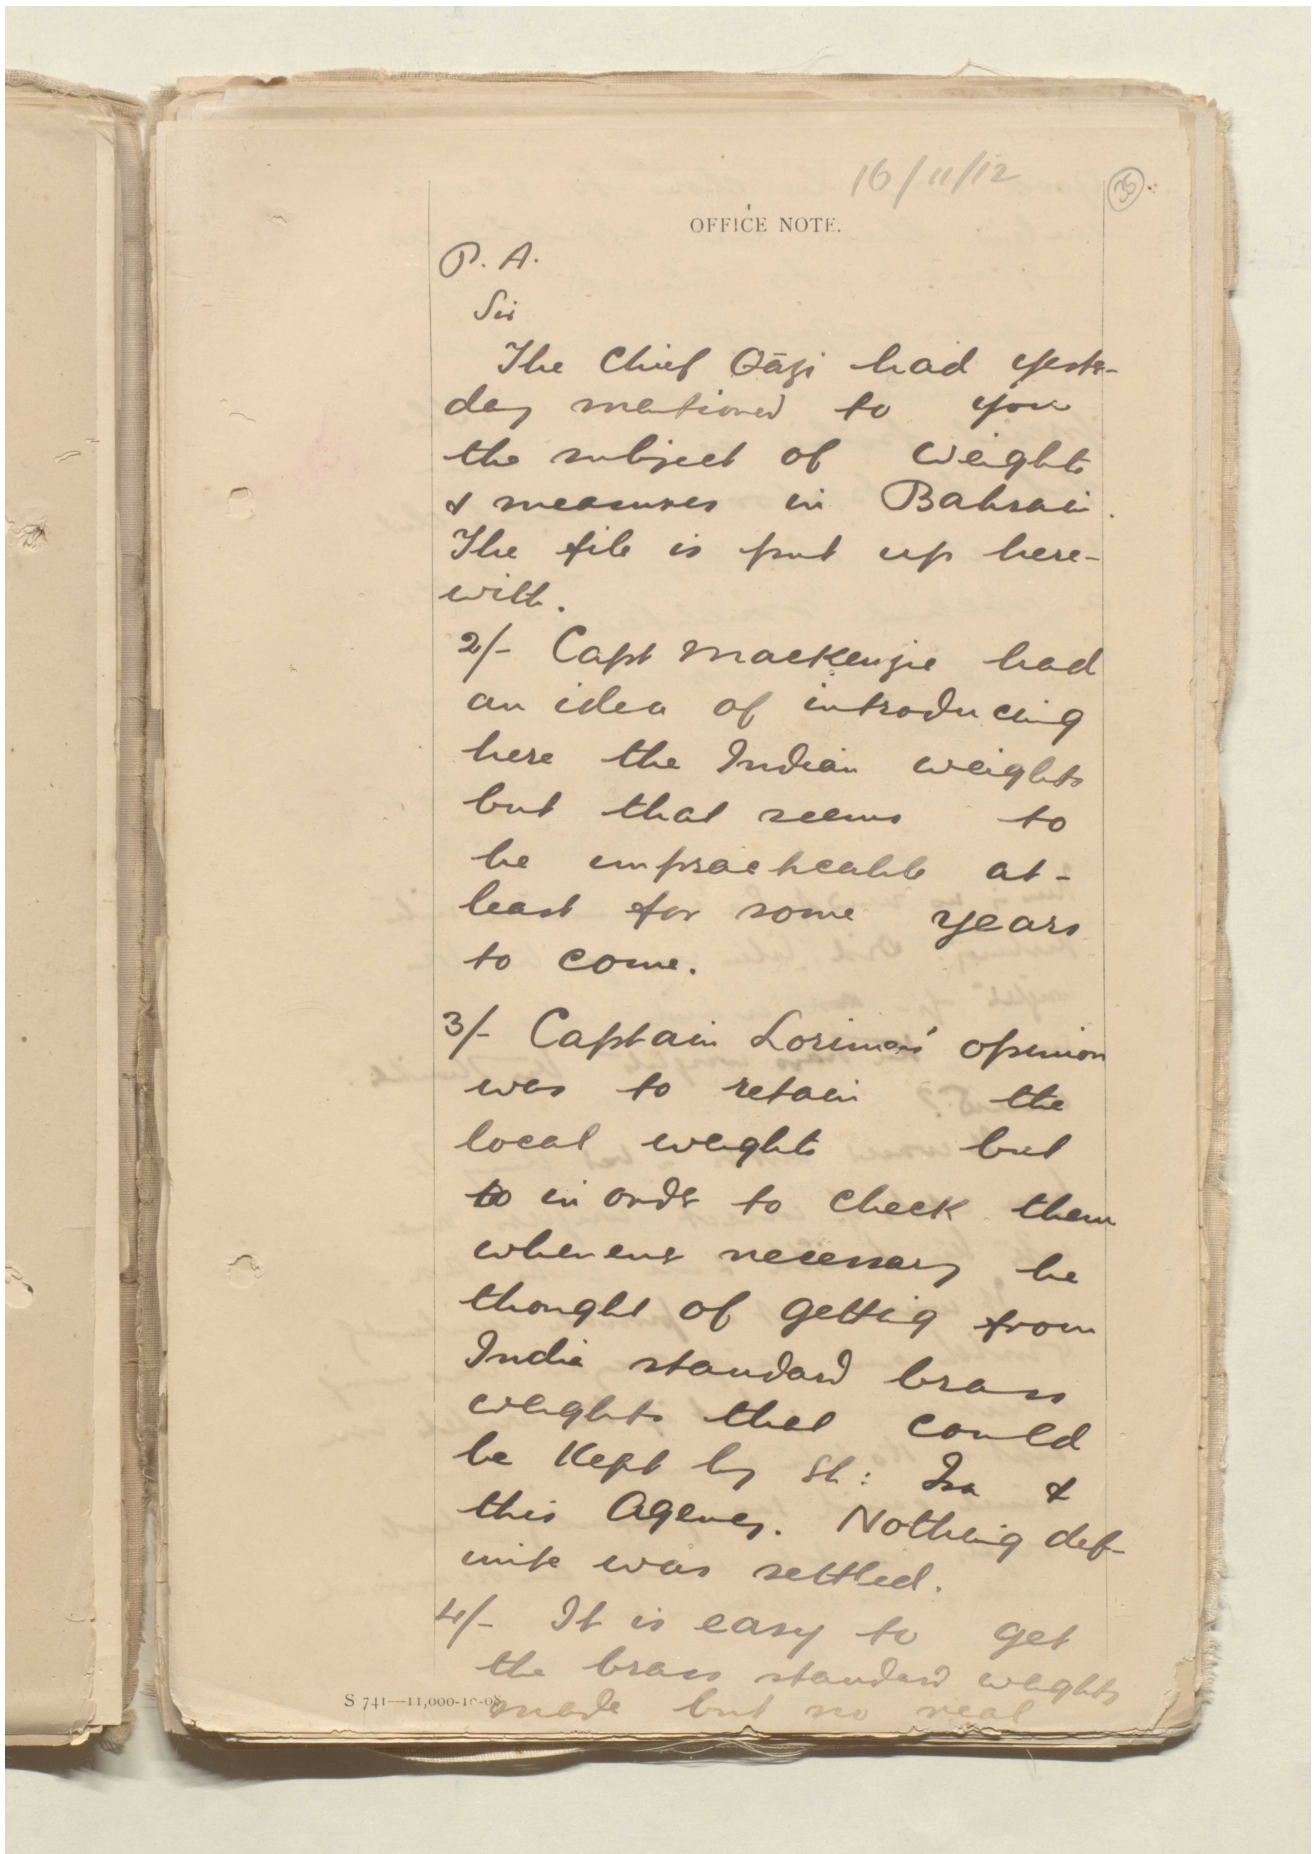 16/11/12
36
OFFICE NOTE.
P. A.
Sir
The Chief Qāzi had yester-
day mentioned to you
the subject of weights
& measures in Bahrain.
The file is put up here-
with.
2/- Capt Mackenzie had
an idea of introducing
here the Indian weights
but that seems to
be impracticable at-
least for some years
to come.
3/- Captain Lorimer's opinion
was to retain the
local weights but
to in order to check them
whenever necessary he
thought of getting from
India standard brass
weights that could
be kept by Sh: Isa &
this Agency. Nothing def-
inite was settled.
4/- It is easy to get
the brass standard weights
made but no real
S 741—11,000-10-08